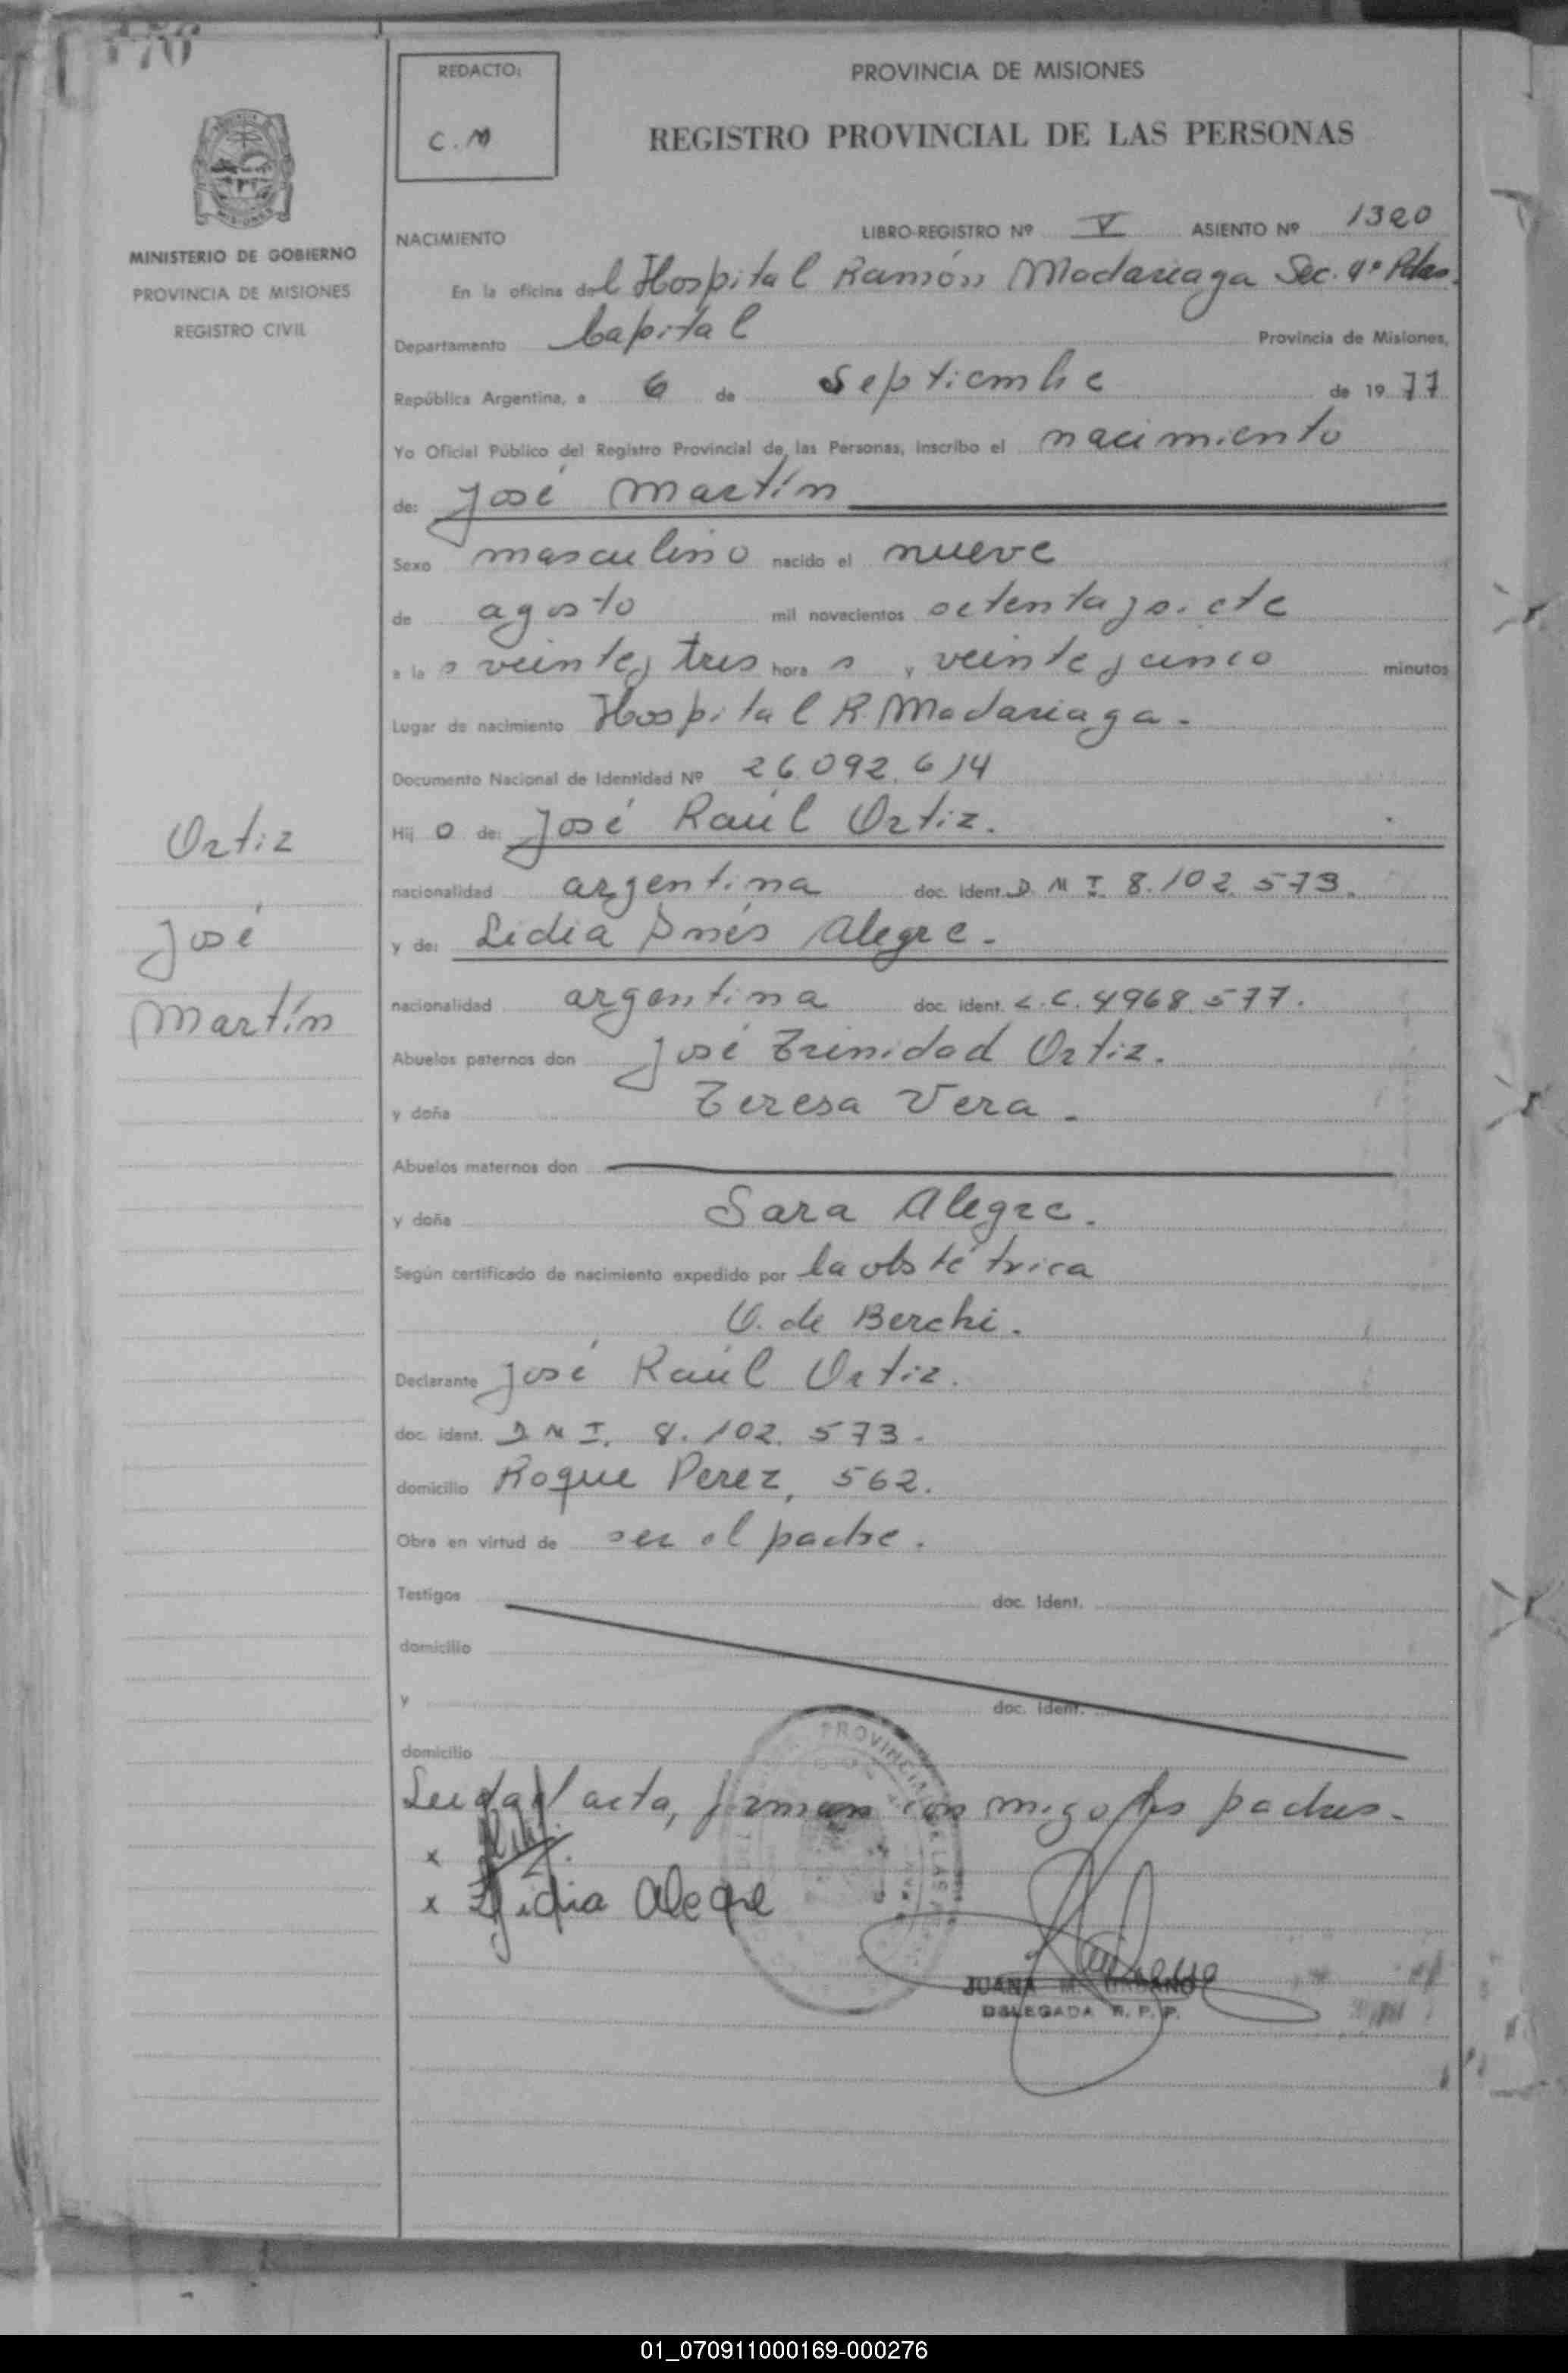 176
REDACTO:
C.M
PROVINCIA DE MISIONES
REGISTRO PROVINCIAL DE LAS PERSONAS
MINISTERIO DE GOBIERNO
PROVINCIA DE MISIONES
REGISTRO CIVIL
NACIMIENTO LIBRO-REGISTRO Nº V ASIENTO Nº 1320
En la oficina del Hospital Ramón Madariaga Sec. 4ª Pdas.
Departamento Capital Provincia de Misiones,
República Argentina, a 6 de Septiembre de 1977
Yo Oficial Público del Registro Provincial de las Personas, inscribo el nacimiento
de: José Martín
Sexo masculino nacido el nueve
de agosto mil novecientos setenta y siete
a las veinte y tres horas y veinte y cinco minutos
Lugar de nacimiento Hospital R. Madariaga.
Documento Nacional de Identidad Nº 26.092.614
Hijo de: José Raúl Ortiz.
nacionalidad argentina doc. ident. D N I. 8.102.573.
y de: Lidia Inés Alegre.
nacionalidad argentina doc. ident. L.C. 4968.577.
Abuelos paternos don José Trinidad Ortiz.
y doña Teresa Vera.
Abuelos maternos don
y doña Sara Alegre.
Según certificado de nacimiento expedido por la obstétrica
O. de Berchi.
Declarante José Raúl Ortiz.
doc. ident. D N I. 8.102.573.
domicilio Roque Perez, 562.
Obra en virtud de ser el padre.
Testigos doc. Ident.
domicilio
y doc. Ident.
domicilio
Leida el acta, firman con migo los padres.
x
x Lidia Alegre
JUANA M.
DELEGADA R. P. P.
Ortiz
José
Martín
01_070911000169-000276